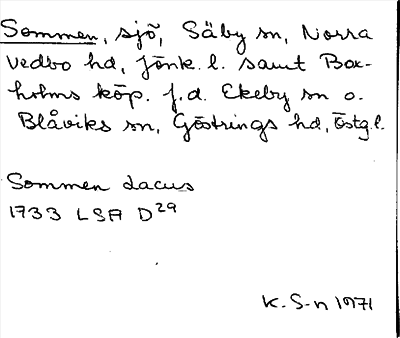 Sommen, sjö, Säby sn, Norra
Vedbo hd, Jönk. l. samt Box-
holms köp. f.d. Ekeby sn o.
Blåviks sn, Göstrings hd, Östg. l.
Sommen Lacus
1733 LSA D29
K. S-n 1971